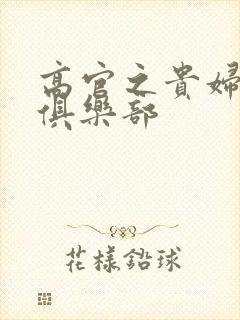 高官之貴婦
俱樂部
花樣鉛球